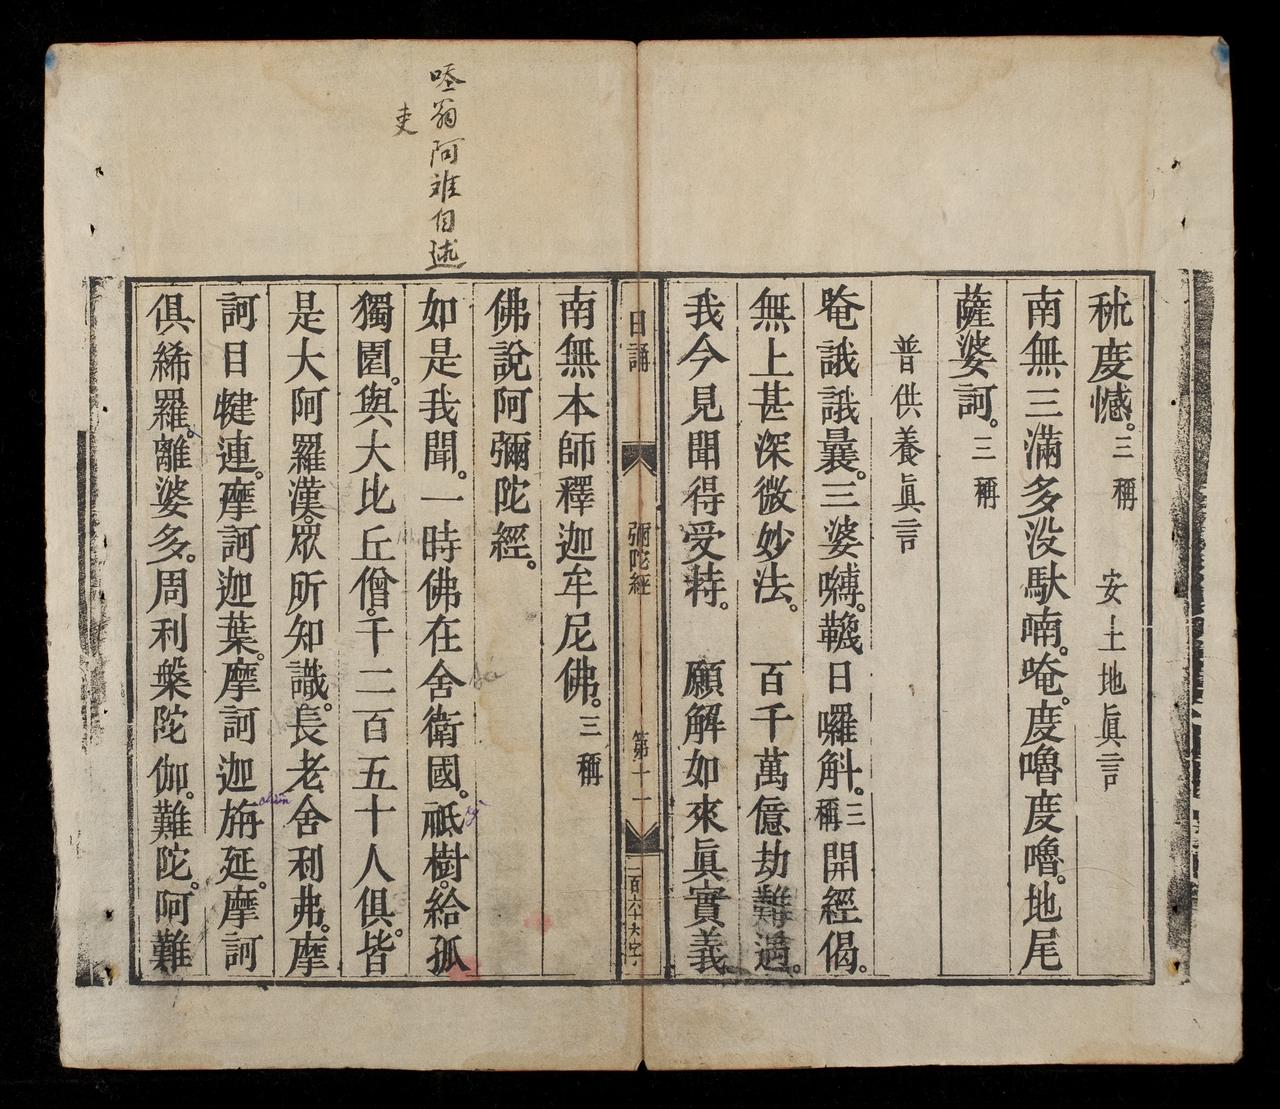 秫度憾。三稱 安土地眞言
南無三滿多没馱喃。唵。度嚕度嚕。地尾
薩婆訶。三稱
普供養眞言
唵誐誐曩。三婆嚩。韈日囉斛。三稱 開經偈。
無上甚深微妙法。 百千萬億劫難遇。
我今見聞得受持。 願解如來眞實義
日誦 彌陀經 第十一 二百六十六字
南無本師釋迦牟尼佛。三稱
佛說阿彌陀經。
如是我聞。一時佛在舍衛國。祗樹。給孤
獨園。與大比丘僧。千二百五十人俱。皆
是大阿羅漢。眾所知識。長老舍利弗。摩
訶目犍連。摩訶迦葉。摩訶迦旃延。摩訶
俱絺羅。離婆多。周利槃陀伽。難陀。阿難
翁阿难自述
吏